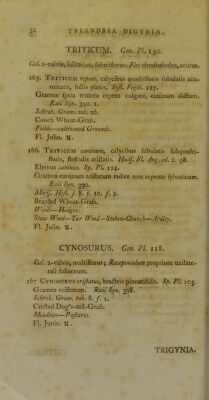 32 TRIANDRIA DIGYNIA.
TRITICUM. Gen. Pl. 130.
Cal. 2-valvis, solitarius, subtriflorus. Flos obtusiusculus, acutus.
165. TRITICUM repens, calycibus quadrifloris subulatis acu-
minatis, foliis planis. Syst. Veget. 127.
Gramen spica triticea repens vulgare, caninum dictum.
Raii Syn. 390. 1.
Schreb. Gram. tab. 26.
Couch Wheat-Grass.
Fields—cultivated Grounds.
Fl. Julio. ♃.
166. TRITICUM caninum, calycibus subulatis subquadri-
floris, flosculis aristatis. Huds. Fl. Ang. ed. 2. 58.
Elymus caninus. Sp. Pl. 124.
Gramen caninum aristatum radice non repente sylvaticum.
Raii Syn. 390.
Moris. Hist. s. 8. t. 10. f. 2.
Bearded Wheat-Grass.
Woods—Hedges.
Stow Wood—Tar Wood—Stoken-Church—Ardley.
Fl. Julio. ♃.
CYNOSURUS. Gen. Pl. 118.
Cal. 2-valvis, multiflorus; Receptaculum proprium unilate-
rali foliaceum.
167 CYNOSURUS cristatus, bracteis pinnatifidis. Sp. Pl. 105.
Gramen cristatum. Raii Syn. 398.
Schreb. Gram. tab. 8. f. 1.
Crested Dog's-tail-Grass.
Meadows—Pastures.
Fl. Junio. ♃.
TRIGYNIA.